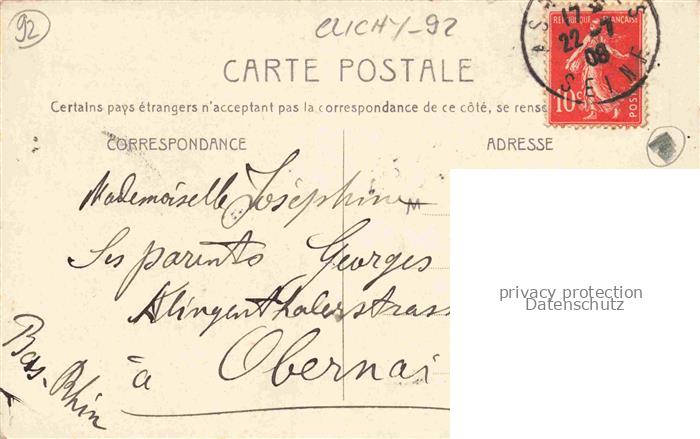 92
CLICHY-92
RÉPUBLIQUE FRANÇAISE
10c
POS
AS
17
22 -7
08
SEINE
CARTE POSTALE
Certains pays étrangers n'acceptent pas la correspondance de ce côté, se rense
CORRESPONDANCE
ADRESSE
Mademoiselle Joséphine
M
Ses parents Georges
Klingenthalerstrass
à Obernai
Bas-Rhin
privacy protection
Datenschutz